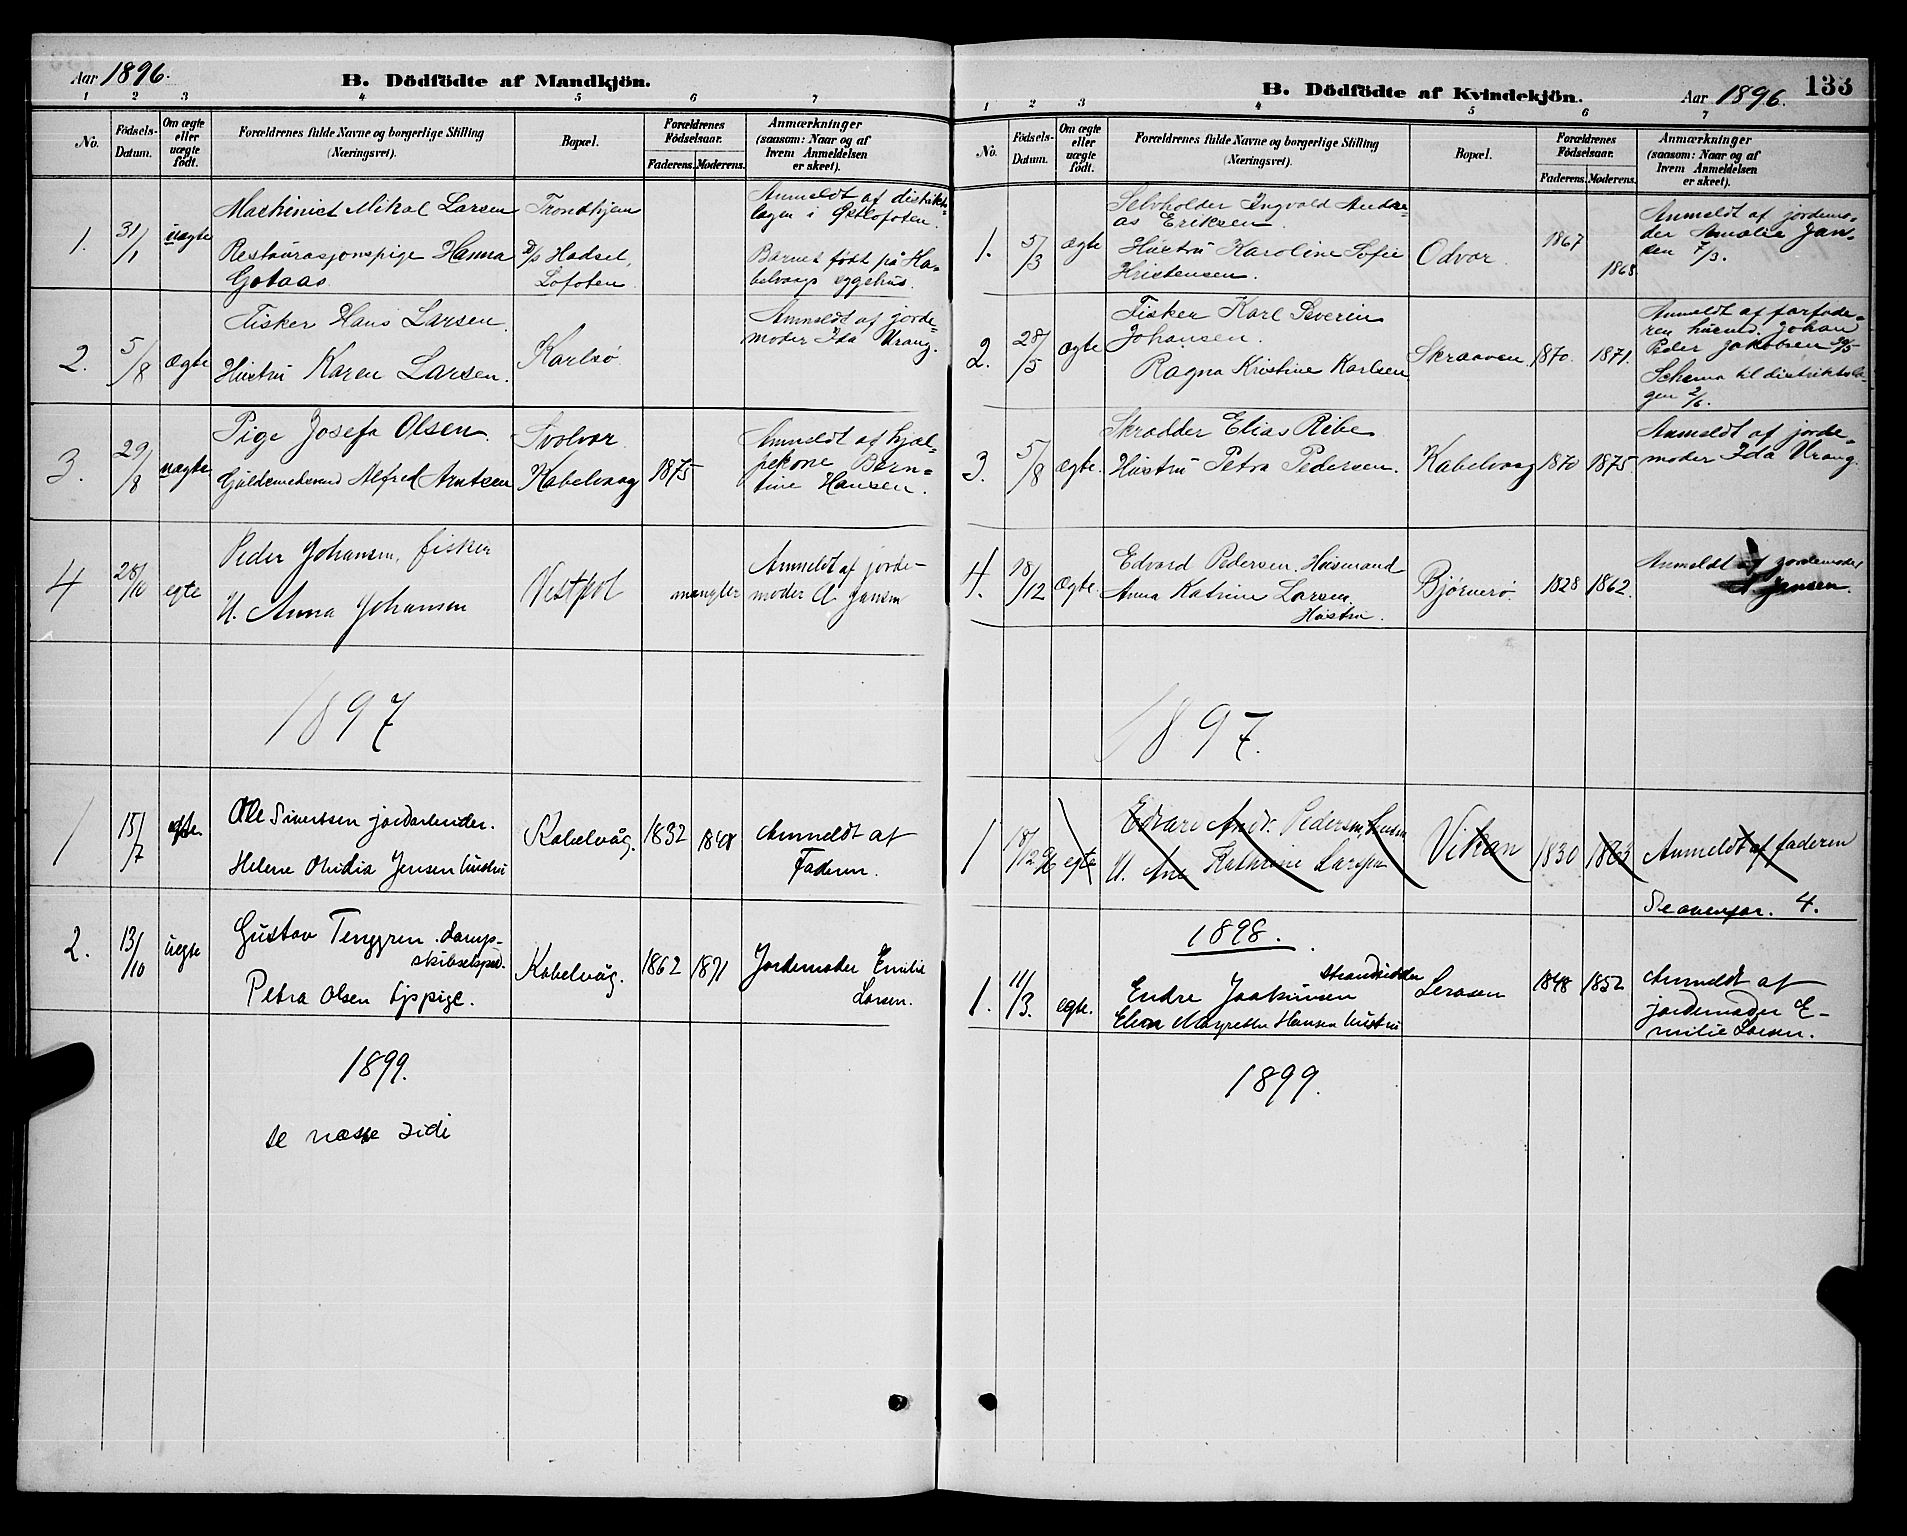 Aar 1896.
B. Dödfödte af Mandkjön.
1 2 3 4 5 6 7
No.
Födsels-
Datum.
Om ægte
eller
uægte
födt.
Forældrenes fulde Navne og borgerlige Stilling
(Næringsvei).
Bopæl.
Forældrenes
Födselsaar.
Faderens. Moderens.
Anmærkninger
(saasom: Naar og af
hvem Anmeldelsen
er skeet).
1. 31/1 uægte
Maskinist Mikal Larsen
Restaurasjonspige Hanna
Gotaas
Trondhjem
D/s Hadsel,
Lofoten
Anmeldt af distrikts-
lægen i Østlofoten.
Barnet født på Ka-
belvaag sygehus.
2. 5/8 Ægte
Fisker Hans Larsen.
Hustru Karen Larsen.
Karlsø
Anmeldt af jorde-
moder Ida Wrang.
3. 29/8 uægte
Pige Josefa Olsen.
Guldsmedsvend Alfred Arntzen
Svolvær
Kabelvaag
1875
Anmeldt af hjæl-
pekone Bern-
tine Hansen.
4 28/10 egte
Peder Johansen, fisker
H. Anna Johansen
Vestpol
mangler
Anmeldt af jorde-
moder A. Jansen
1897
1 15/7 egte
Ole Sivertsen jordarbeider.
Helene Ovidia Jensen hustru
Kabelvåg. 1832 1848
Anmeldt af
Faderen.
2. 13/10 uegte
Gustav Tenggren damp-
skibsexped.
Petra Olsen tjspige.
Kabelvåg. 1862 1871
Jordemoder Emilie
Larsen.
1899.
se næste side
B. Dödfödte af Kvindekjön.
Aar 1896.
133
1 2 3 4 5 6 7
No.
Födsels-
Datum.
Om ægte
eller
uægte
födt.
Forældrenes fulde Navne og borgerlige Stilling
(Næringsvei).
Bopæl.
Forældrenes
Födselsaar.
Faderens. Moderens.
Anmærkninger
(saasom: Naar og af
hvem Anmeldelsen
er skeet).
1. 5/3 ægte
Selvholder Ingvald Andre-
as Eriksen.
Hustru Karoline Sofie
Kristensen.
Odvær.
1867
1868
Anmeldt af jordemo-
der Amalie Jan-
sen 7/3.
2. 28/5 ægte
Fisker Karl Severin
Johansen.
Ragna Kristine Karlsen
Skraaven 1870. 1871.
Anmeldt af farfade-
ren husmd. Johan
Peder Jakobsen 30/5
Schema til distriktslæ-
gen 2/6.
3. 5/8 ægte.
Skrædder Elias Ribe
Hustru Petra Pedersen.
Kabelvaag 1870 1875
Anmeldt af jorde-
moder Ida Wrang.
4. 18/12 ægte.
Edvard Pedersen. Husmand
Anna Katrine Larsen.
Hustru.
Bjørnerø. 1828 1862.
Anmeldt af jordemoder
A Jansen.
1897.
1 18/12 96 egte
Edvard Andr. Pedersen,
H. Ane Kathrine Larsen
Vikan 1830 1863
Anmeldt af faderen
Se ovenfor. 4.
1898.
1. 11/3. egte.
Endre Joakimsen Strandsidder
Elen Magrethe Hansen hustru
Lerosen 1848 1852
Anmeldt af
jordemoder E-
milie Larsen.
1899.